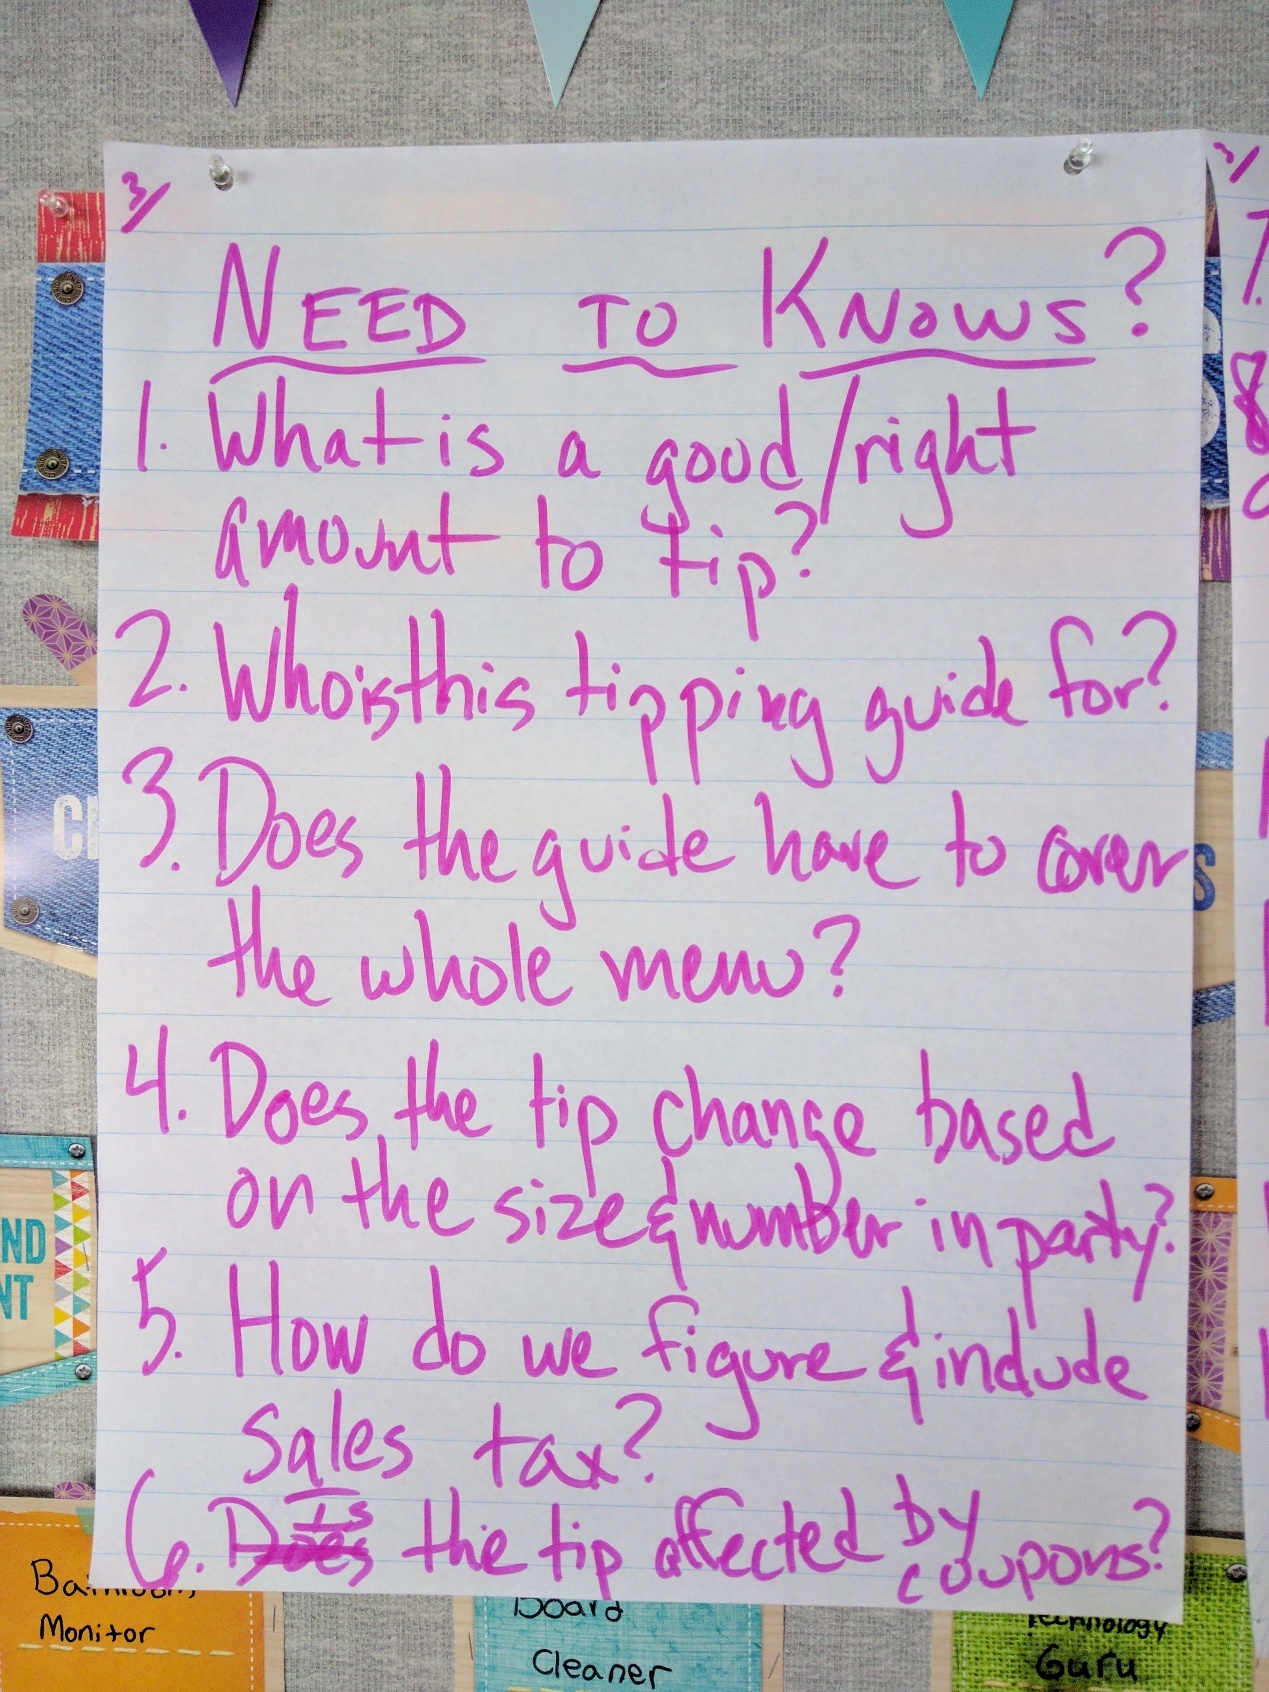 3/
NEED TO KNOWS?
1. What is a good/right
amount to tip?
2. Who is this tipping guide for?
3. Does the guide have to cover
the whole menu?
4. Does the tip change based
on the size & number in party?
5. How do we figure & include
sales tax?
6. Does Is the tip affected by
coupons?
3/
7.
8
CL
S
ND
NT
Bathroom
Monitor
Board
Cleaner
Technology
Guru